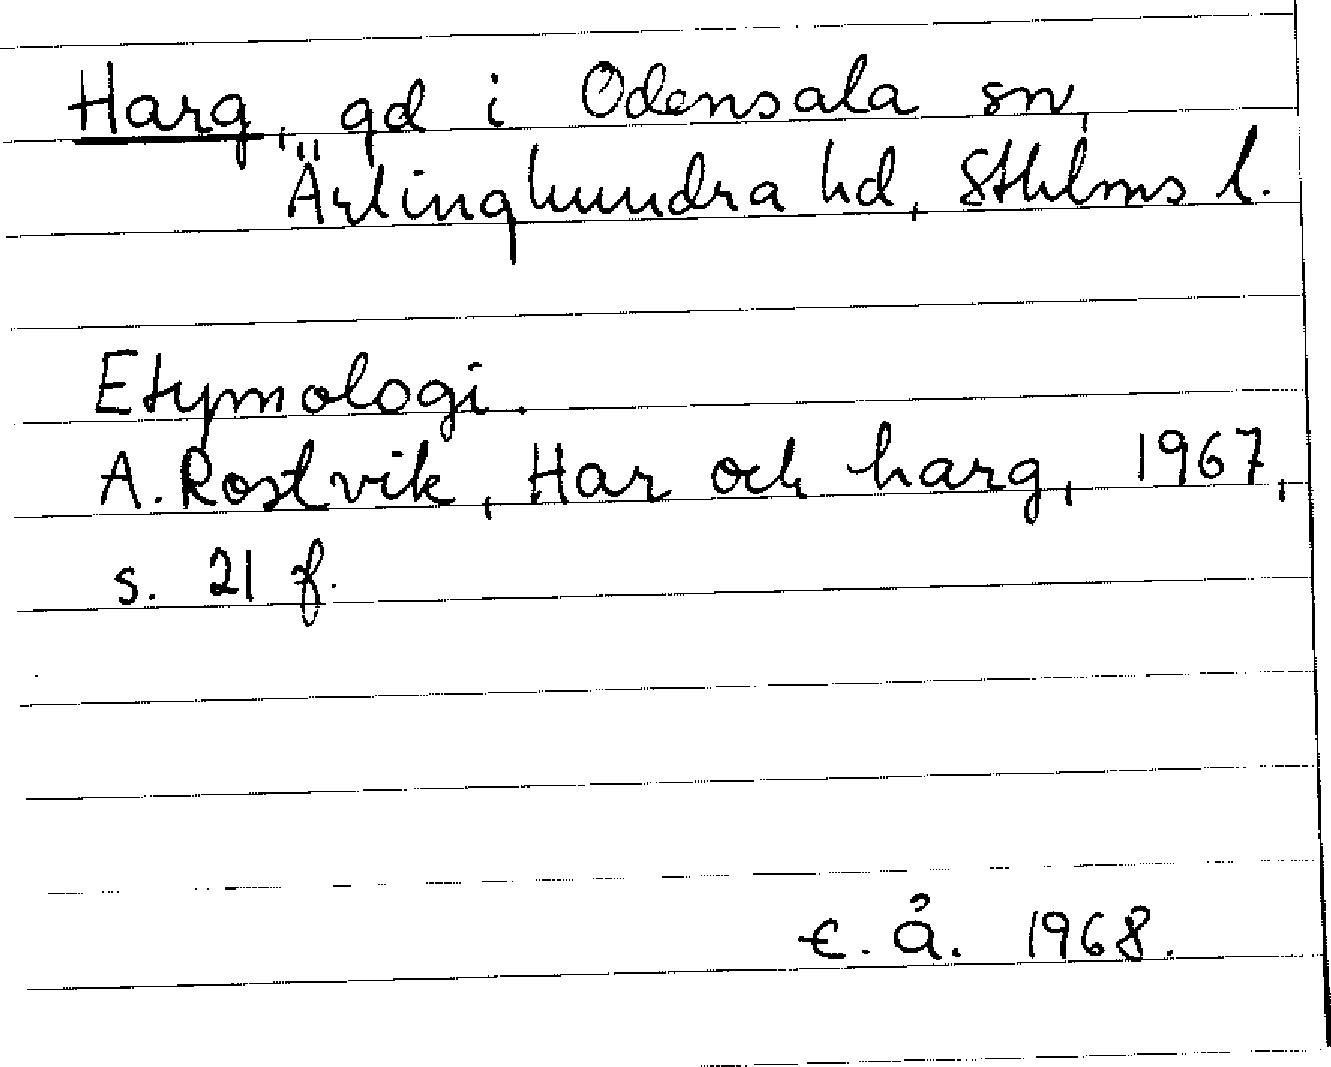 Harg, gd i Odensala sn,
Ärlinghundra hd, Sthlms l.
Etymologi.
A. Rostvik, Har och harg, 1967,
s. 21 f.
E. Å. 1968.